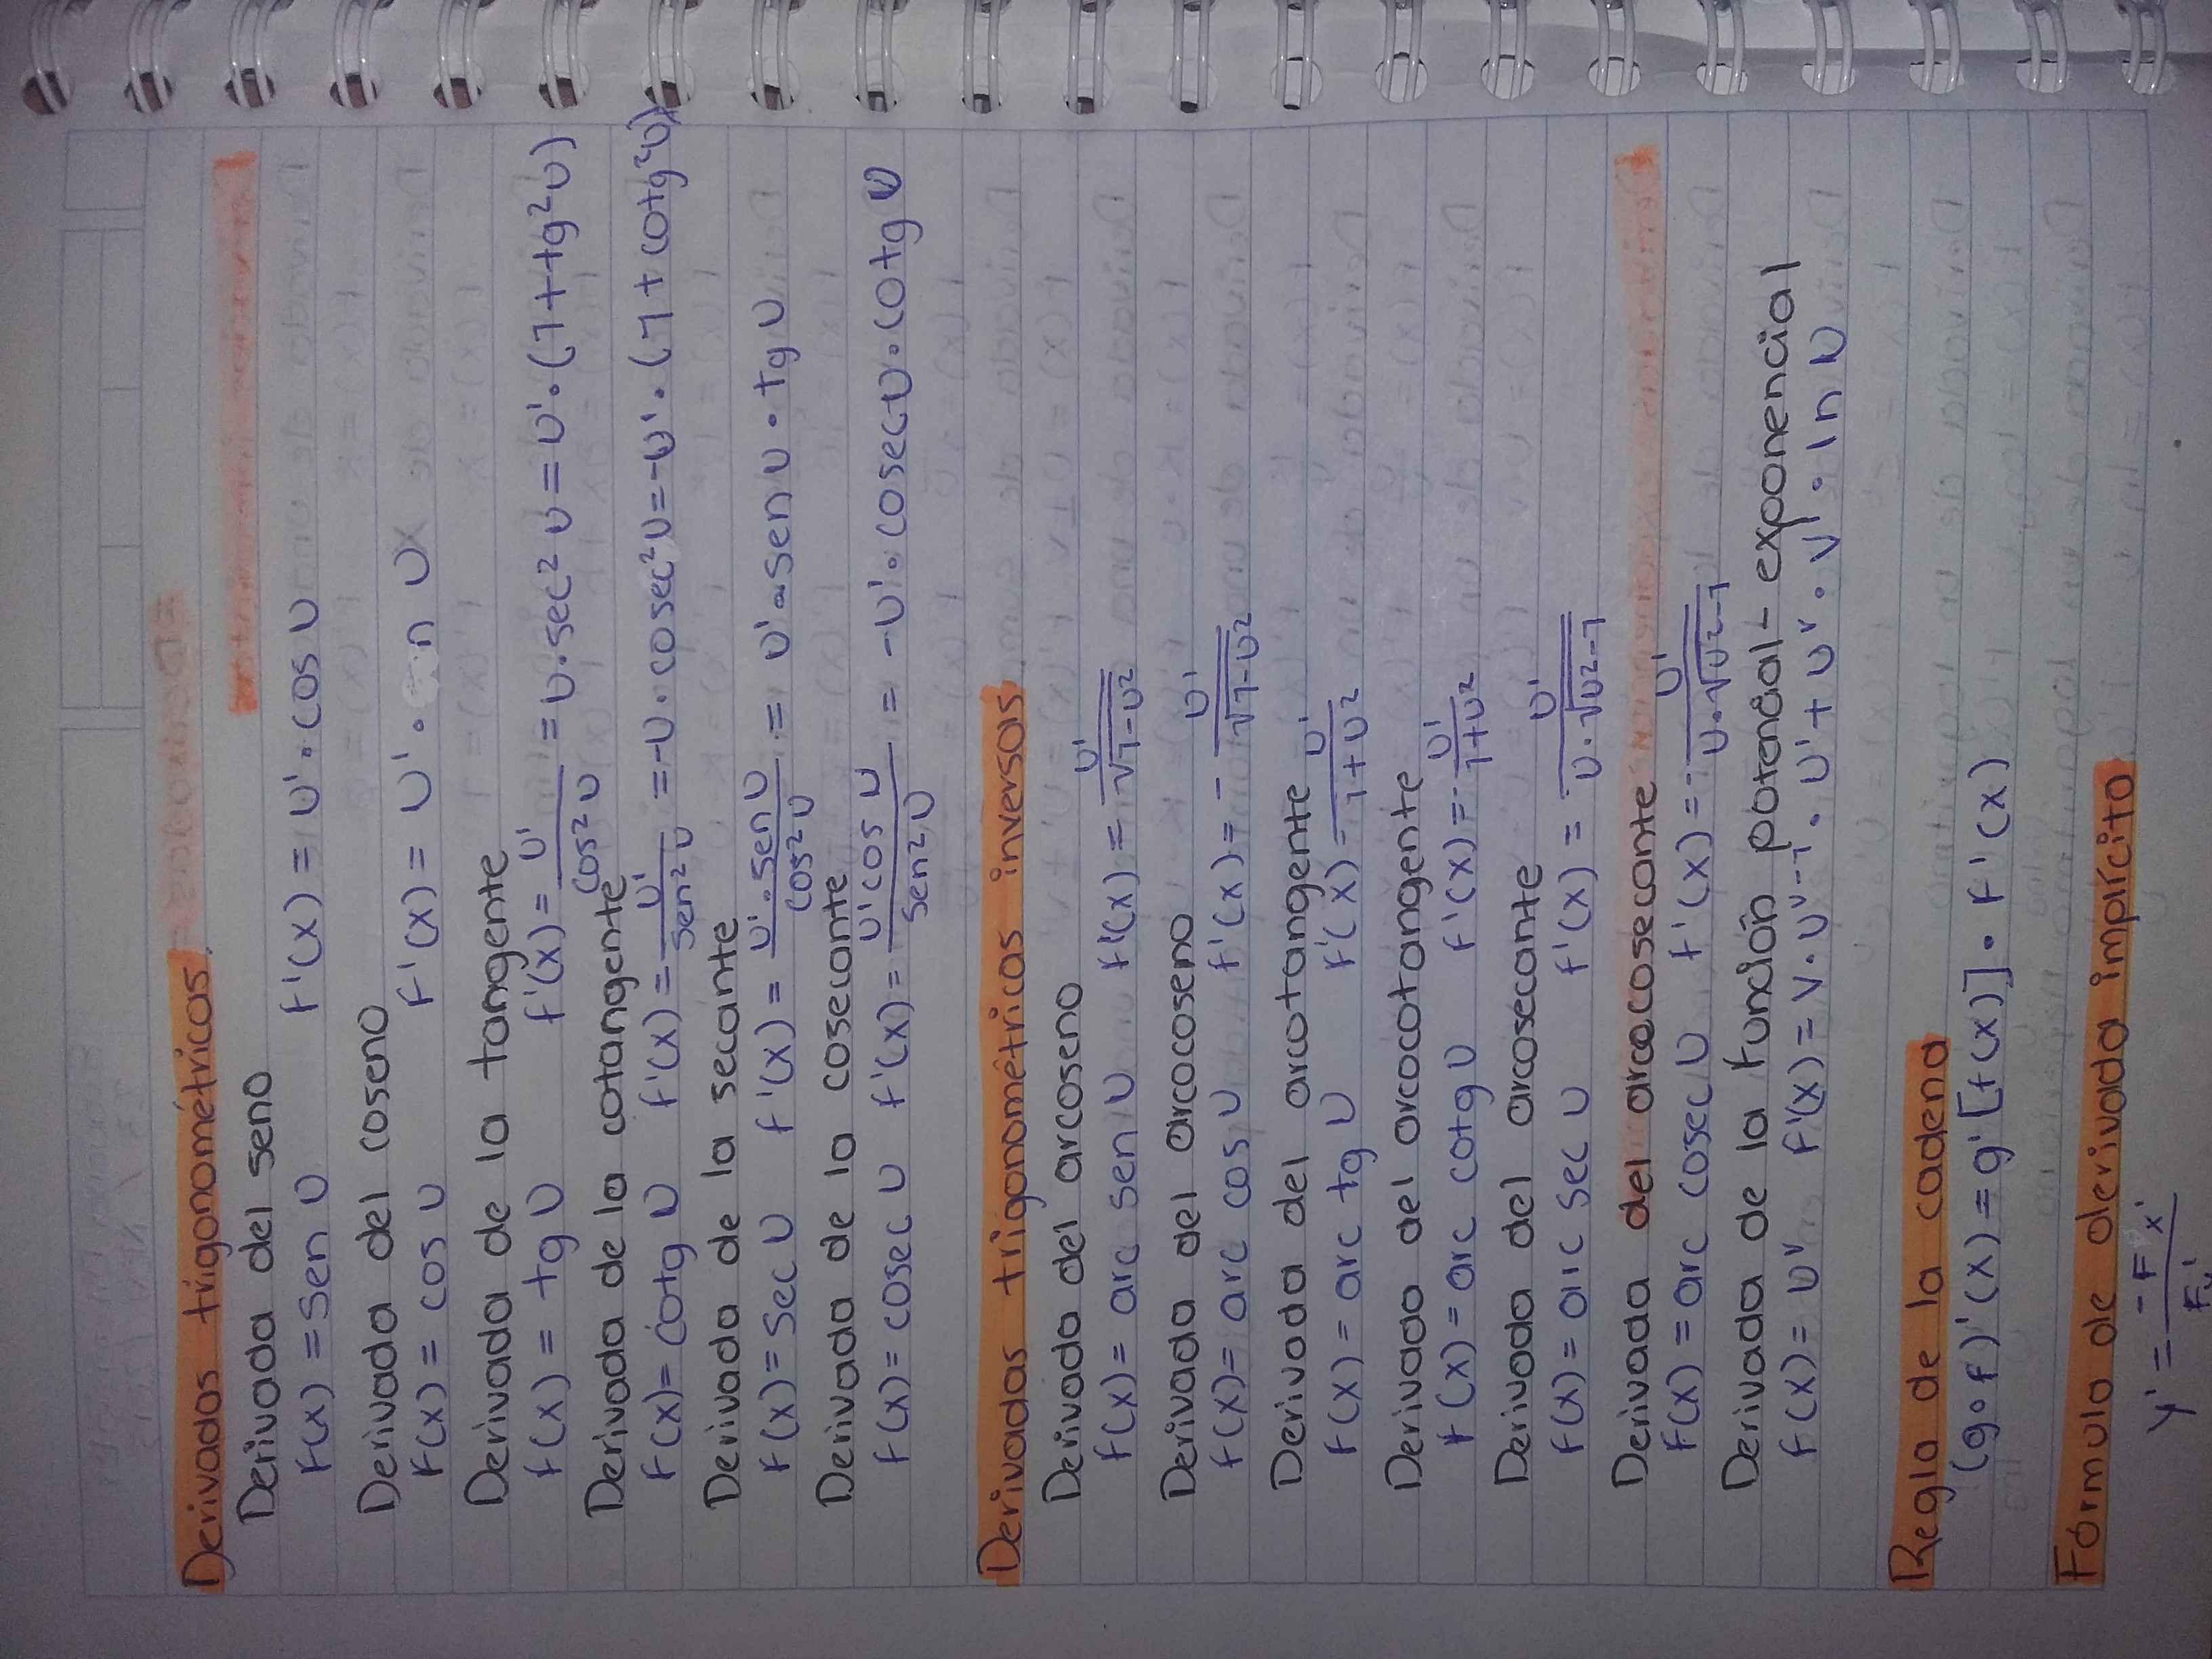 Derivadas trigonométricas.
Derivada del seno
F(x) = sen U F'(x) = U' • cos U
Derivada del coseno
F(x) = cos U F'(x) = U' • n U
Derivada de la tangente
f(x) = tg U f'(x) = U' / cos² U = U • sec² U = U' • (1 + tg² U)
Derivada de la cotangente
F(x) = cotg U f'(x) = U' / sen² U = -U • cosec² U = -U' • (1 + cotg² U)
Derivada de la secante
F(x) = sec U f'(x) = U' • sen U / cos² U = U' • sen U • tg U
Derivada de la cosecante
F(x) = cosec U f'(x) = U' cos U / sen² U = -U' • cosec U • cotg U
Derivadas trigonométricas inversas.
Derivada del arcoseno
f(x) = arc sen U f'(x) = U' / √1-U²
Derivada del arcocoseno
f(x) = arc cos U f'(x) = - U' / √1-U²
Derivada del arcotangente
F(x) = arc tg U F'(x) = U' / 1+U²
Derivada del arcocotangente
F(x) = arc cotg U F'(x) = - U' / 1+U²
Derivada del arcosecante
F(x) = arc sec U f'(x) = U' / U • √U²-1
Derivada del arcocosecante
F(x) = arc cosec U f'(x) = - U' / U • √U²-1
Derivada de la función potencial - exponencial
f(x) = Uᵛ F'(x) = V • Uᵛ⁻¹ • U' + Uᵛ • V' • ln U
Regla de la cadena
(g∘f)'(x) = g'[f(x)] • F'(x)
Fórmula de derivada implícita
y' = -Fx' / Fy'